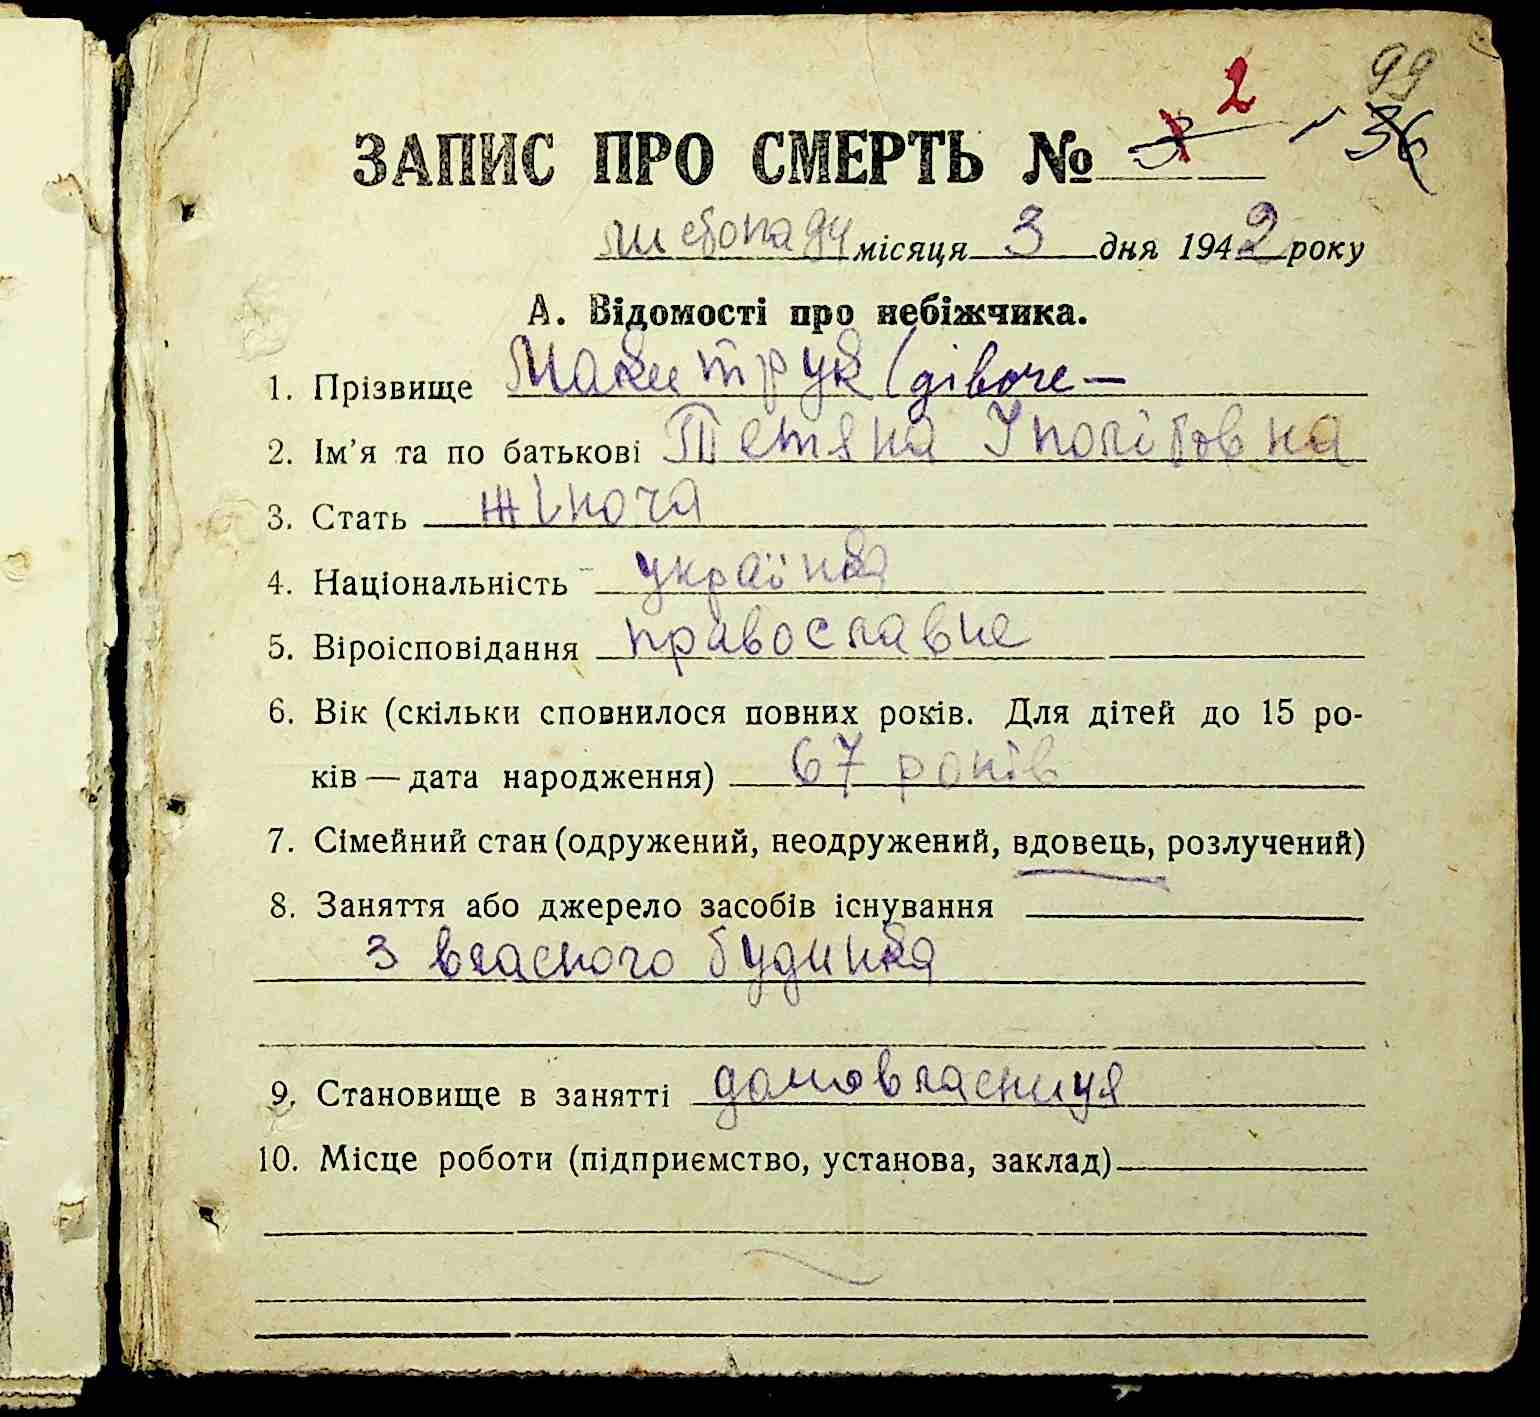 99
2
ЗАПИС ПРО СМЕРТЬ № 3 36
листопаду місяця 3 дня 1942 року
А. Відомості про небіжчика.
1. Прізвище Макитрук (дівоче —
2. Ім'я та по батькові Тетяна Іполітовна
3. Стать жіноча
4. Національність українка
5. Віроісповідання православне
6. Вік (скільки сповнилося повних років. Для дітей до 15 ро-
ків — дата народження) 67 років
7. Сімейний стан (одружений, неодружений, вдовець, розлучений)
8. Заняття або джерело засобів існування
з власного будинка
9. Становище в занятті домовласниця
10. Місце роботи (підприємство, установа, заклад)